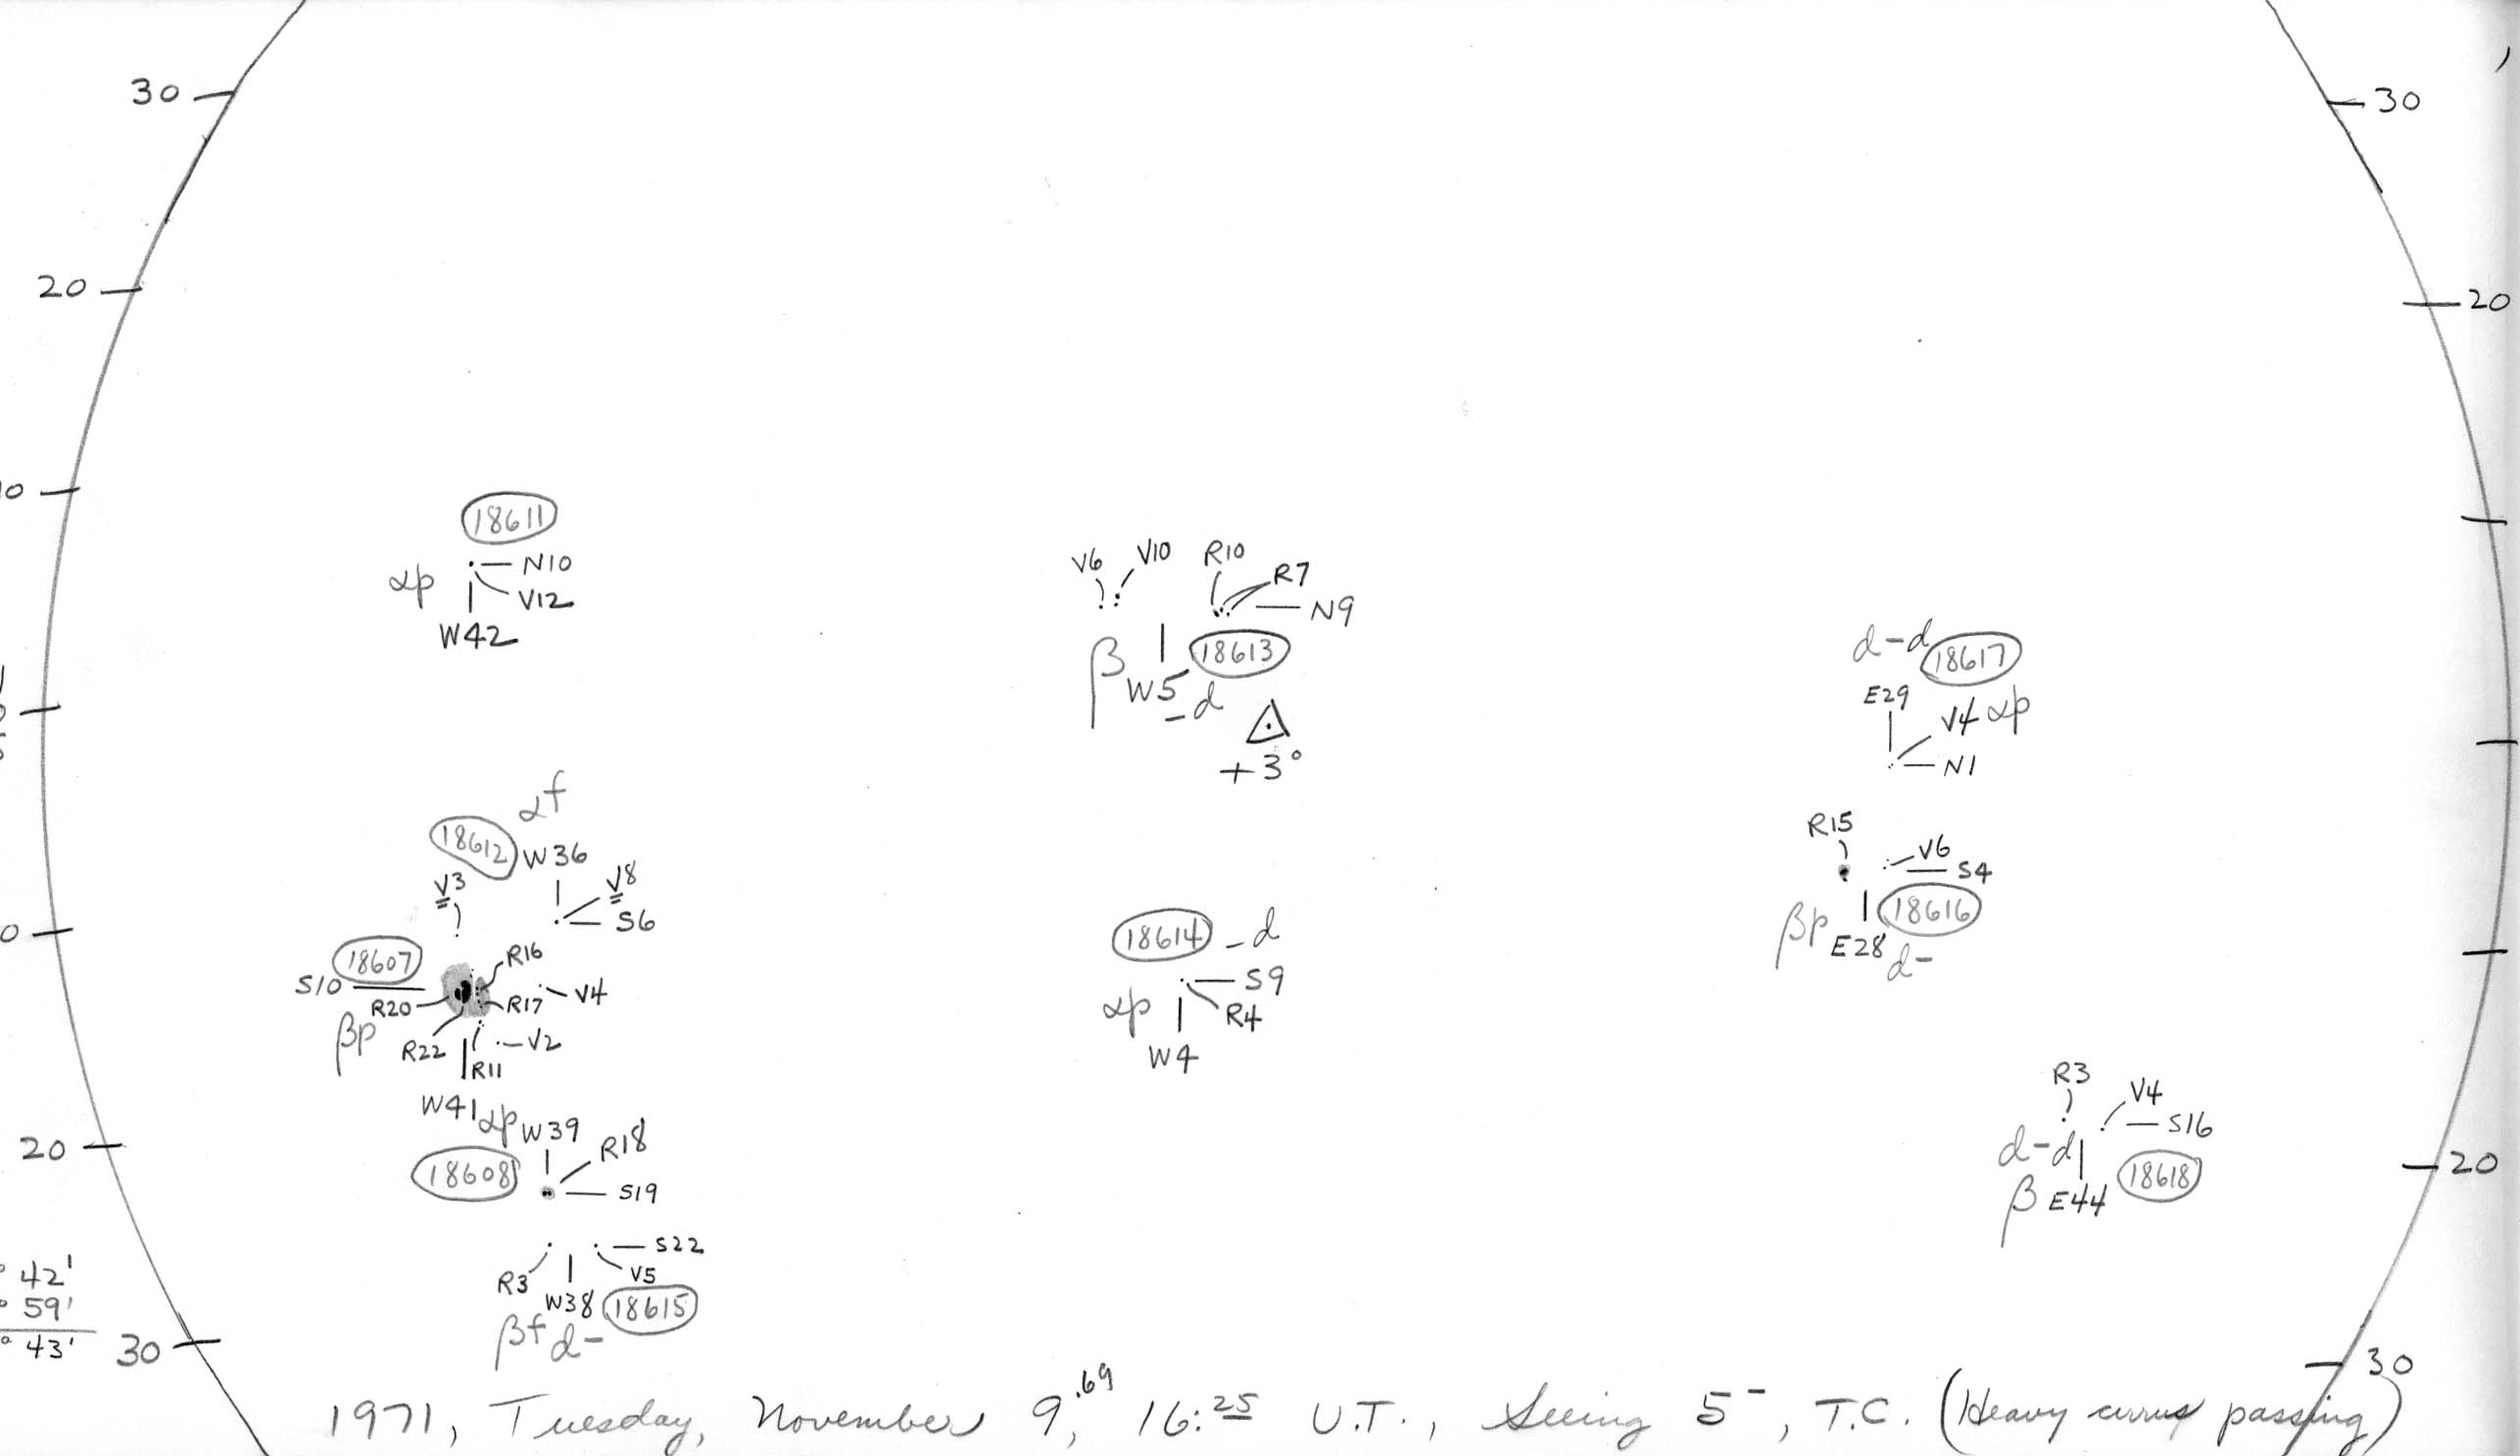 30
30
20
20
18611
αp N10
V12
W42
V6 V10 R10 R7
N9
β W5 18613
_d
+3°
d-d 18617
E29
V4 αp
N1
αf
18612 W36
V3 V8
S6
R15
V6
S4
βp E28 18616
d-
18607
S10
R20 R16
R17 V4
βp R22 R11 V2
W41
18614 _d
S9
αp R4
W4
αp W39 R18
18608
S19
R3 V4
S16
d-d
β E44 18618
20
20
S22
R3 V5
W38 18615
βf d-
42'
59'
43'
30
30
1971, Tuesday, November 9,.69 16:25 U.T., Seeing 5-, T.C. (Heavy cirrus passing)